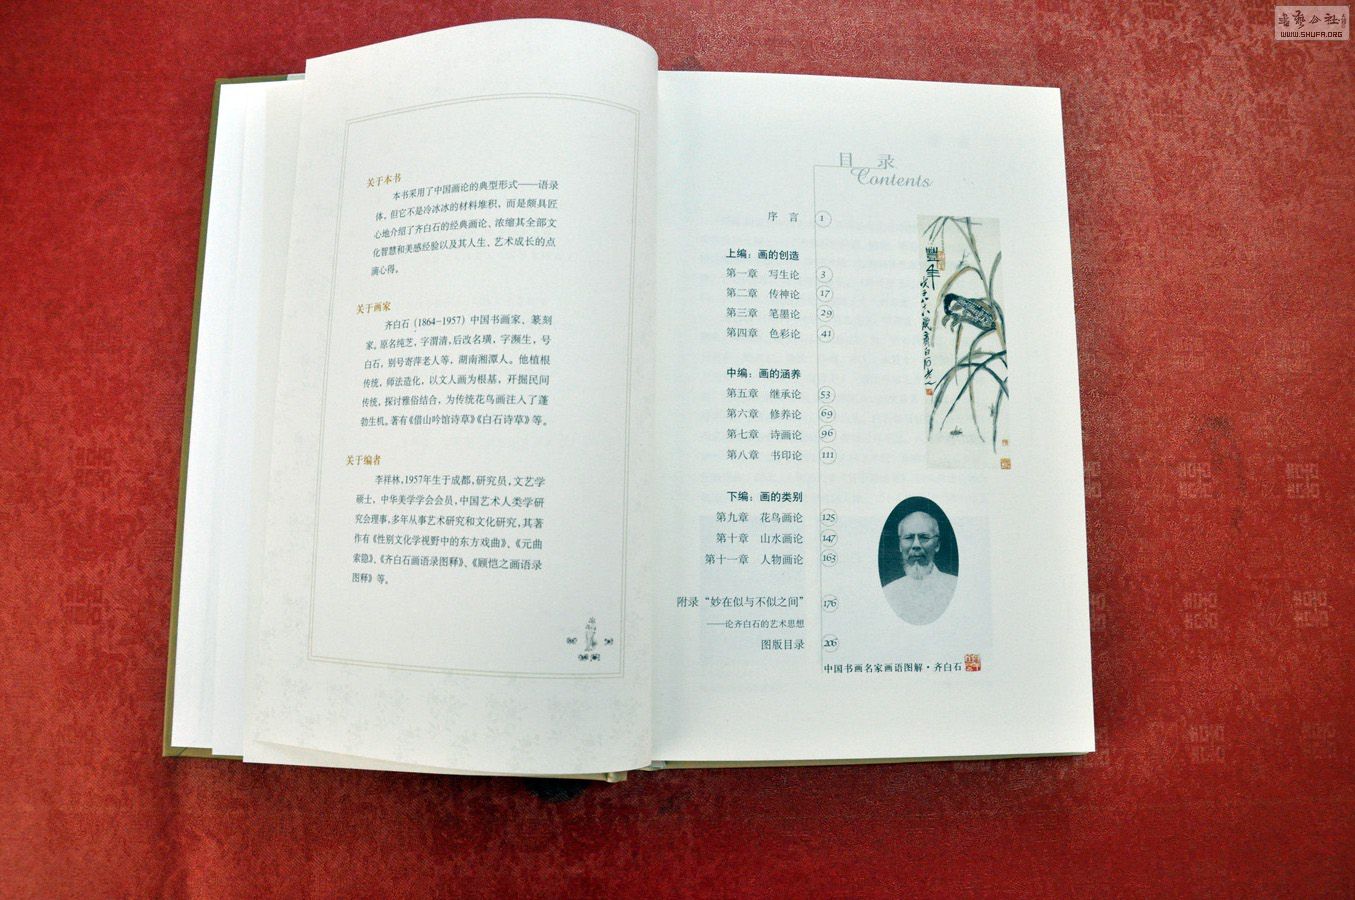 关于本书
本书采用了中国画论的典型形式——语录
体，但它不是冷冰冰的材料堆积，而是颇具匠
心地介绍了齐白石的经典画论、浓缩其全部文
化智慧和美感经验以及其人生、艺术成长的点
滴心得。
关于画家
齐白石（1864—1957）中国书画家、篆刻
家。原名纯芝，字渭清，后改名璜，字濒生，号
白石，别号寄萍老人等，湖南湘潭人。他植根
传统，师法造化，以文人画为根基，开掘民间
传统，探讨雅俗结合，为传统花鸟画注入了蓬
勃生机。著有《借山吟馆诗草》《白石诗草》等。
关于编者
李祥林，1957年生于成都，研究员，文艺学
硕士，中华美学学会会员，中国艺术人类学研
究会理事，多年从事艺术研究和文化研究，其著
作有《性别文化学视野中的东方戏曲》、《元曲
索隐》、《齐白石画语录图释》、《顾恺之画语录
图释》等。
目 录
Contents
序 言 1
上编：画的创造
第一章 写生论 3
第二章 传神论 17
第三章 笔墨论 29
第四章 色彩论 41
中编：画的涵养
第五章 继承论 53
第六章 修养论 69
第七章 诗画论 96
第八章 书印论 111
下编：画的类别
第九章 花鸟画论 125
第十章 山水画论 147
第十一章 人物画论 163
附录 “妙在似与不似之间” 176
——论齐白石的艺术思想
图版目录 206
中国书画名家画语图解·齐白石
豐年
WWW.SHUFA.ORG